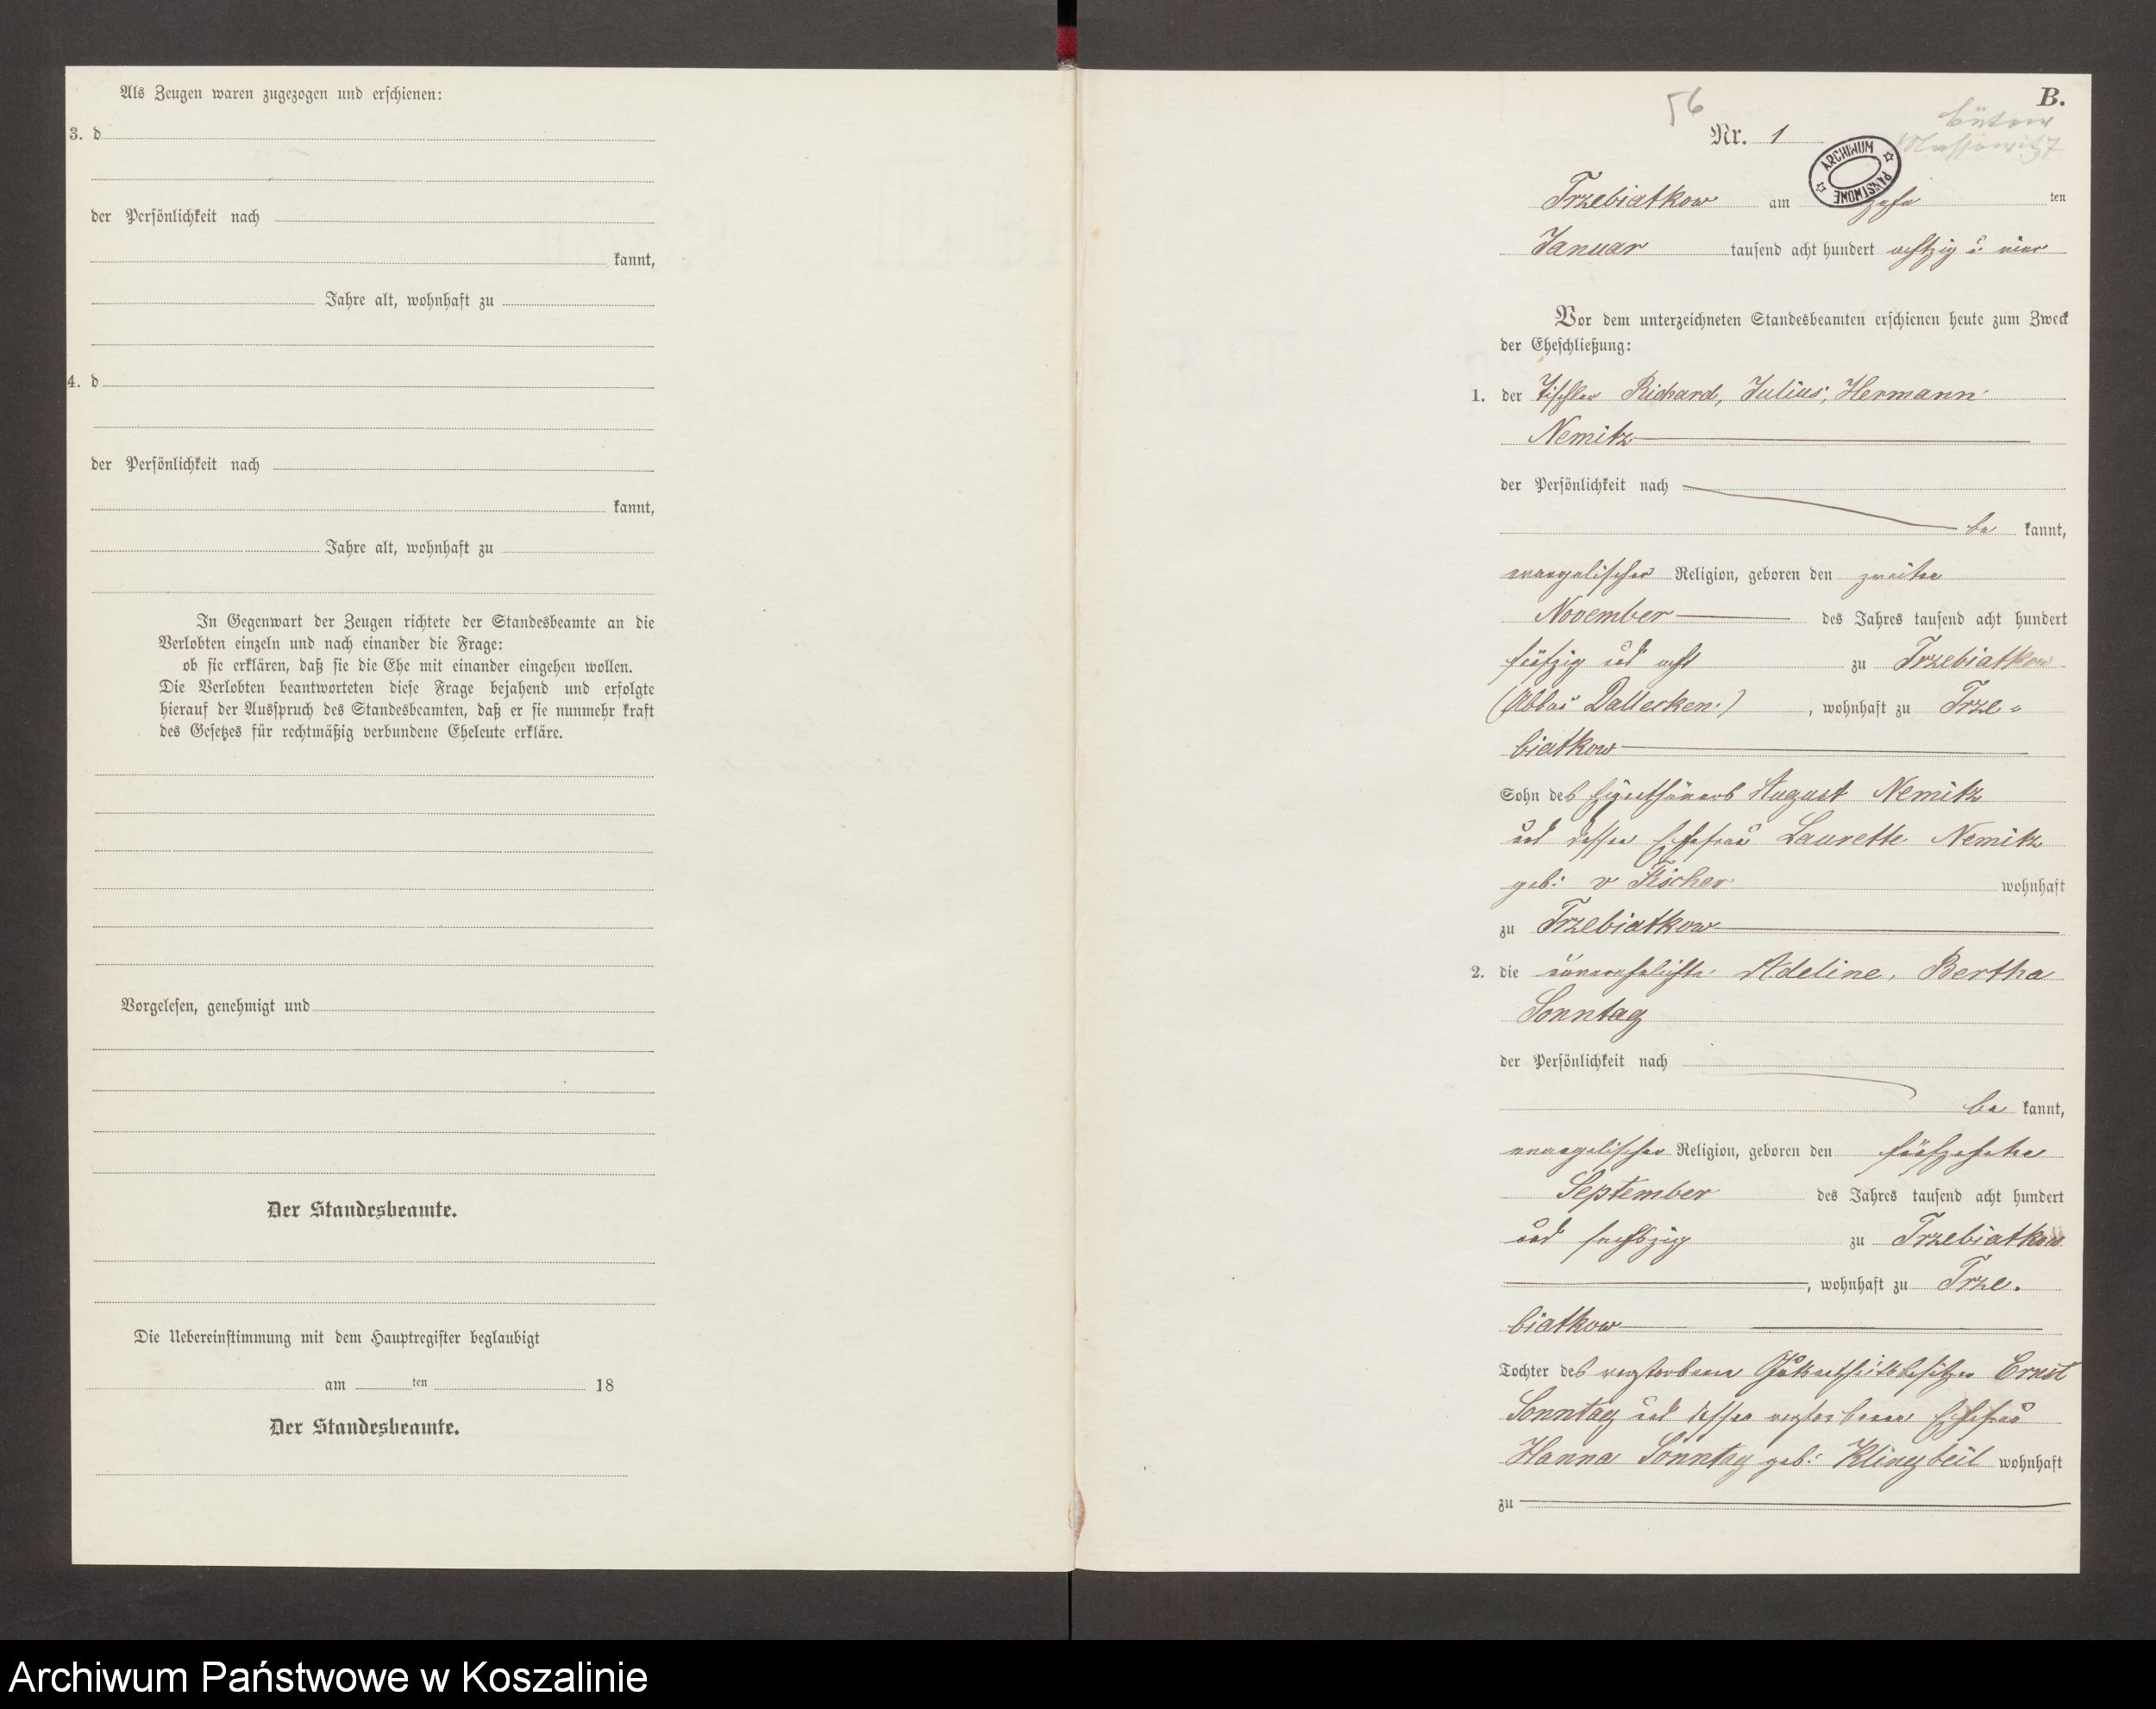 Als Zeugen waren zugezogen und erschienen:
3. d
der Persönlichkeit nach
kannt,
Jahre alt, wohnhaft zu
4. d
der Persönlichkeit nach
kannt,
Jahre alt, wohnhaft zu
In Gegenwart der Zeugen richtete der Standesbeamte an die
Verlobten einzeln und nach einander die Frage:
ob sie erklären, daß sie die Ehe mit einander eingehen wollen.
Die Verlobten beantworteten diese Frage bejahend und erfolgte
hierauf der Ausspruch des Standesbeamten, daß er sie nunmehr kraft
des Gesetzes für rechtmäßig verbundene Eheleute erkläre.
Vorgelesen, genehmigt und
Der Standesbeamte.
Die Uebereinstimmung mit dem Hauptregister beglaubigt
am ten 18
Der Standesbeamte.
B.
56
Bütow
Nr. 1
ARCHIWUM PAŃSTWOWE
Trzebiatkow am zehn ten
Januar tausend acht hundert achtzig u. vier
Vor dem unterzeichneten Standesbeamten erschienen heute zum Zweck
der Eheschließung:
1. der Tischler Richard, Julius, Hermann
Nemitz
der Persönlichkeit nach
be kannt,
evangelischer Religion, geboren den zweiten
November des Jahres tausend acht hundert
fünfzig und acht zu Trzebiatkow
(Abbau Dallecken.), wohnhaft zu Trze-
biatkow
Sohn des Eigenthümers August Nemitz
und dessen Ehefrau Laurette Nemitz
geb: v wohnhaft
zu Trzebiatkow
2. die unverehelichte Adeline, Bertha
Sonntag
der Persönlichkeit nach
be kannt,
evangelischer Religion, geboren den fünfzehnten
September des Jahres tausend acht hundert
und sechszig zu Trzebiatkow
, wohnhaft zu Trze-
biatkow
Tochter des verstorbenen Gutsantheilsbesitzer Ernst
Sonntag und dessen verstorbenen Ehefrau
Hanna Sonntag geb: Klingbeil wohnhaft
zu
Archiwum Państwowe w Koszalinie